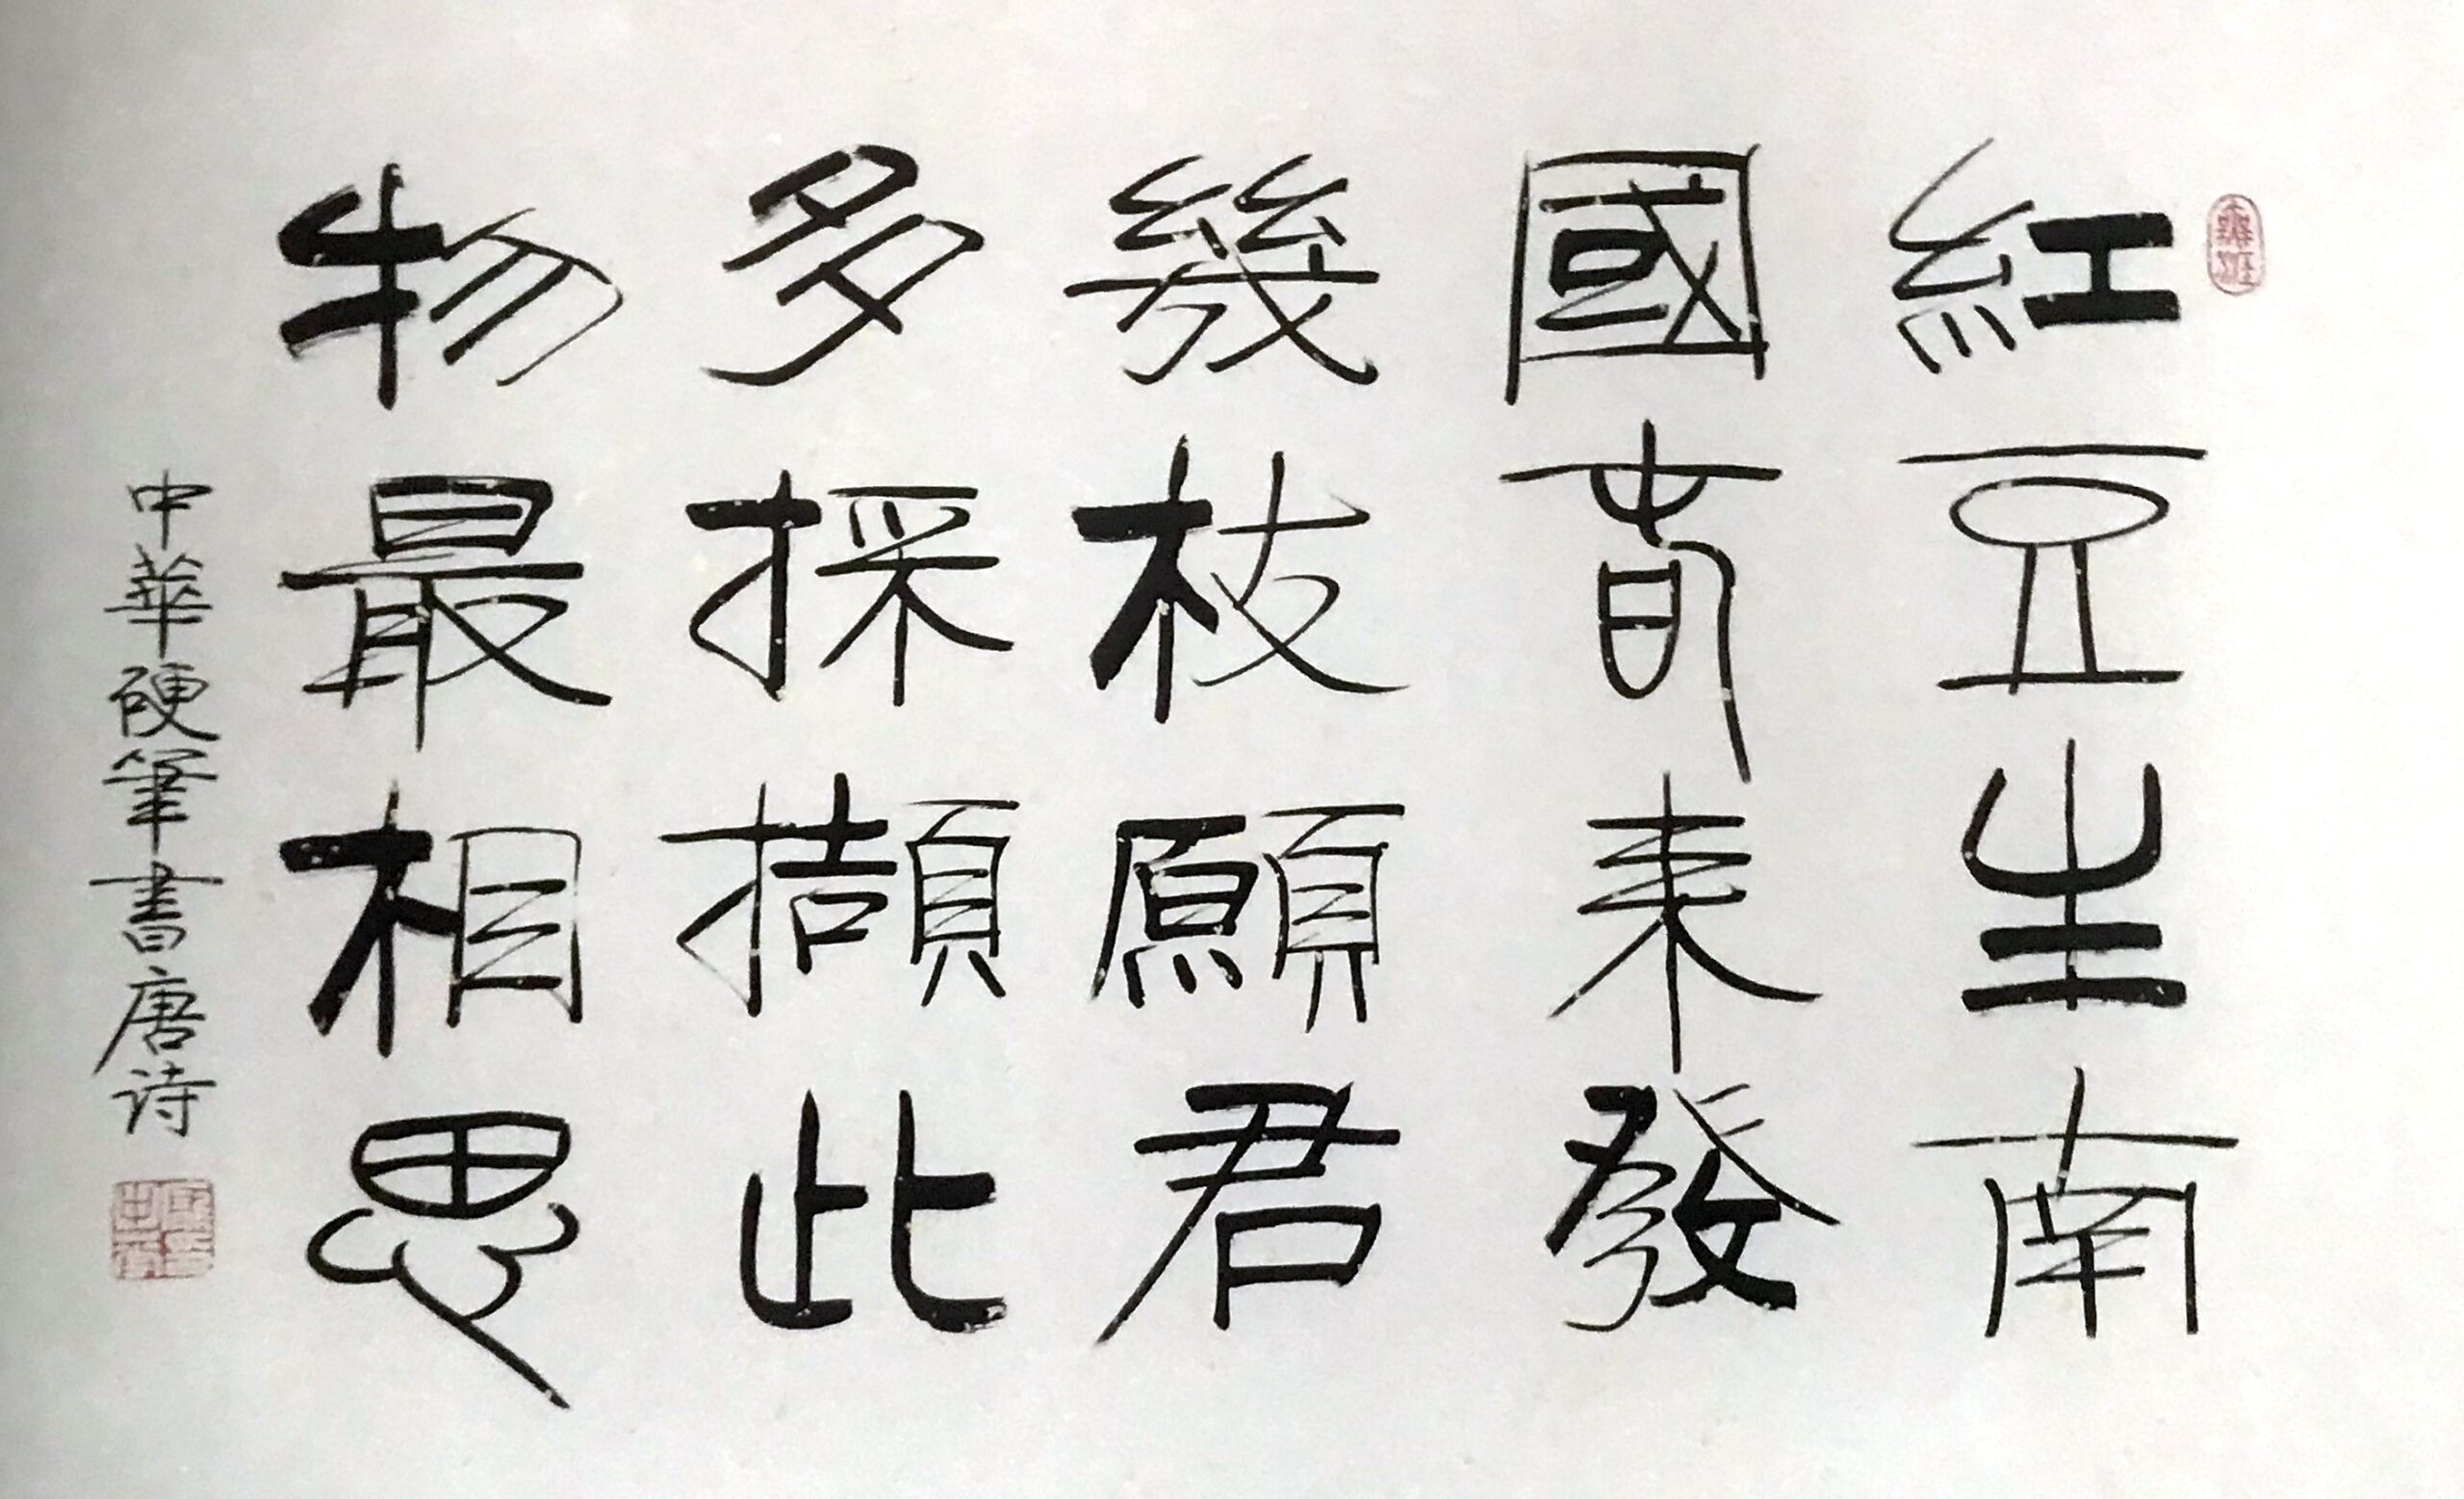 紅豆生南
國春来發
幾枝願君
多採擷此
物最相思
中華硬筆書唐诗